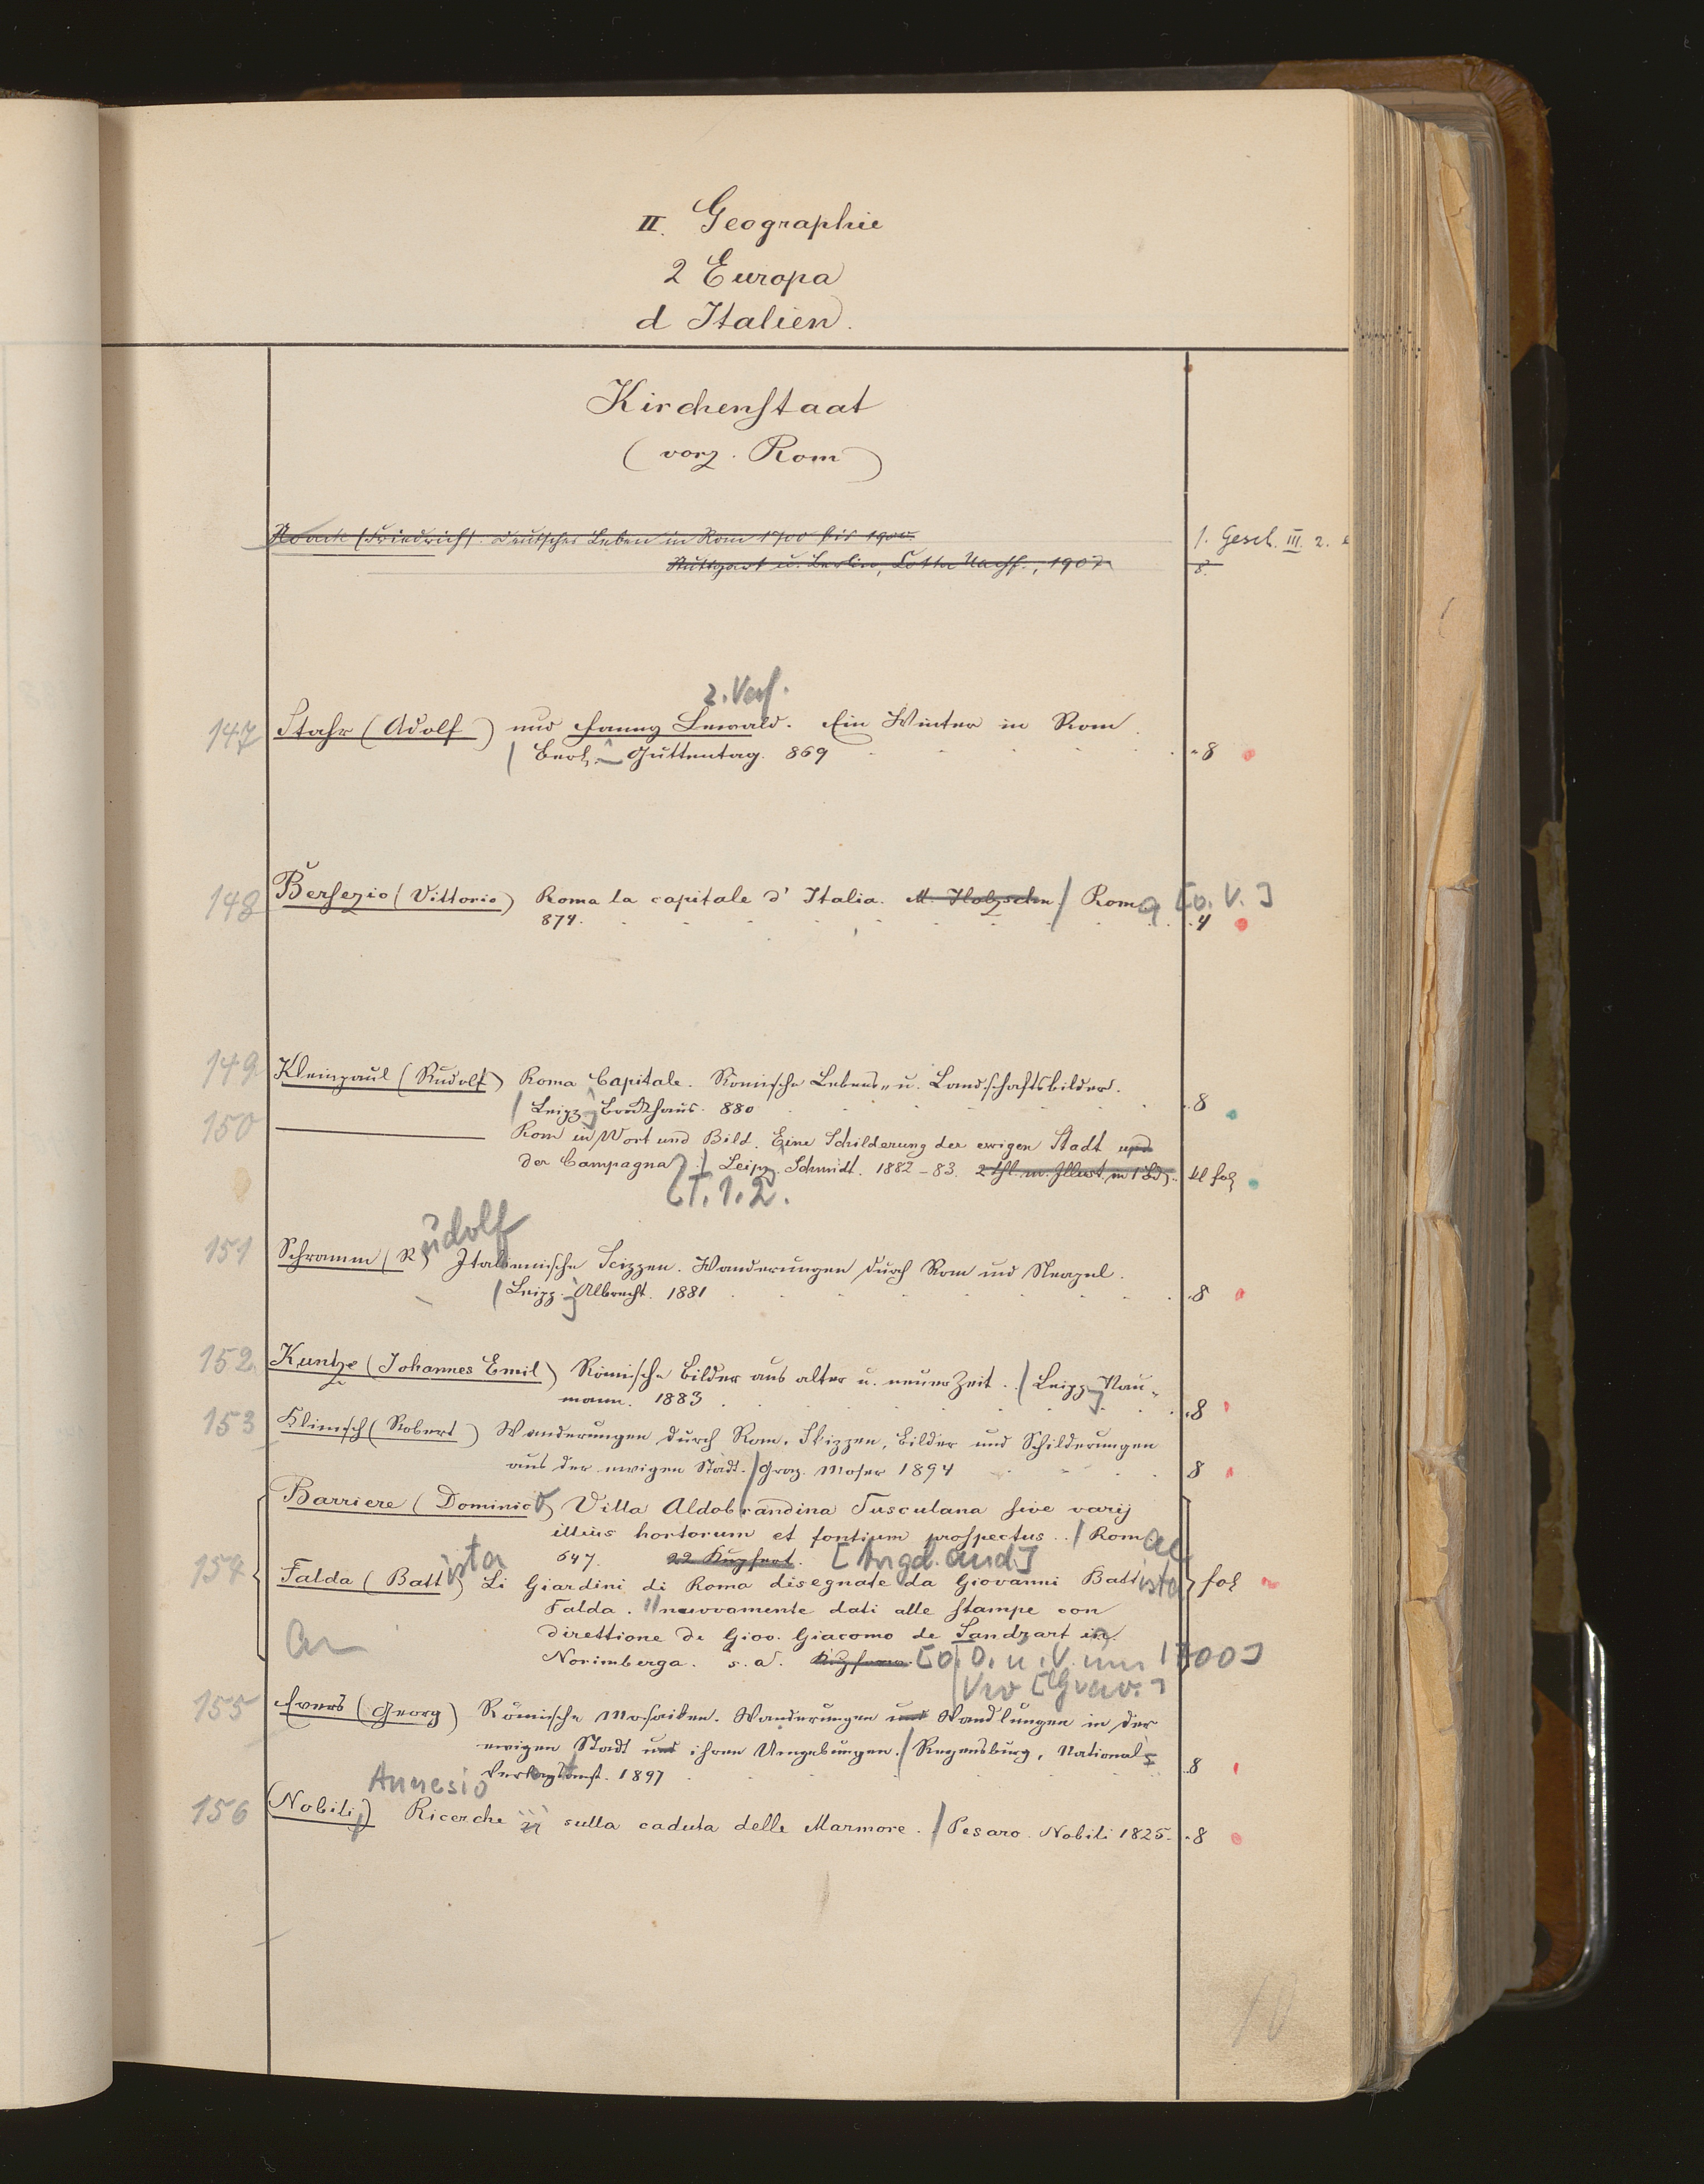 II. Geographie
2 Europa
d Italien.
Kirchenstaat
(vorz. Rom)
Noack (Friedrich). Deutsches Leben in Rom 1700 bis 1900.
Stuttgart u. Berlin, Cotta Nachf., 1907
s. Gesch. III. 2.
8.
2. Verf.
147 Stahr (Adolf) und Fanny Lewald. Ein Winter in Rom.
/ Berl. Guttentag. 869 8
148 Bersezio (Vittorio) Roma la capitale d' Italia. M. Holzschn. / Roma [o. V.]
874. 4
149 Kleinpaul (Rudolf) Roma Capitale. Römische Lebens- u. Landschaftsbilder.
/ Leipz. Brockhaus. 880 8
150 Rom in Wort und Bild. Eine Schilderung der ewigen Stadt und
der Campagna. / Leipz. Schmidt. 1882-83. 2 Thl. m. Illust. in 1 Bd. kl fol
[T. 1. 2.
151 Schramm (Rudolf) Italienische Scizzen. Wanderungen durch Rom und Neapel.
/ Leipz. Albrecht. 1881 8
152 Kuntze (Johannes Emil) Römische Bilder aus alter u. neuer Zeit. / Leipz. Nau-
mann. 1883 8
153 Klimsch (Robert) Wanderungen durch Rom. Skizzen, Bilder und Schilderungen
aus der ewigen Stadt. / Graz. Moser 1894 8
Barriere (Dominic) Villa Aldobrandina Tusculana sive varij
illius hortorum et fontium prospectus. / Romae
647. 22 Kupfert. [Angeb. and.]
154 Falda (Battista) Li Giardini di Roma disegnate da Giovanni Battista fol
Falda. nuovamente dati alle stampe con
direttione di Giov. Giacomo de Sandrart in
Norimberga. s. a. [o. O. u. V. um 1700]
155 Evers (Georg) Römische Mosaiken. Wanderungen und Wandlungen in der
ewigen Stadt und ihren Umgebungen. / Regensburg, National-
Verlagsanst. 1897 8
Annesio
156 (Nobili) Ricerche sulla caduta delle Marmore. / Pesaro. Nobili 1825. 8
10